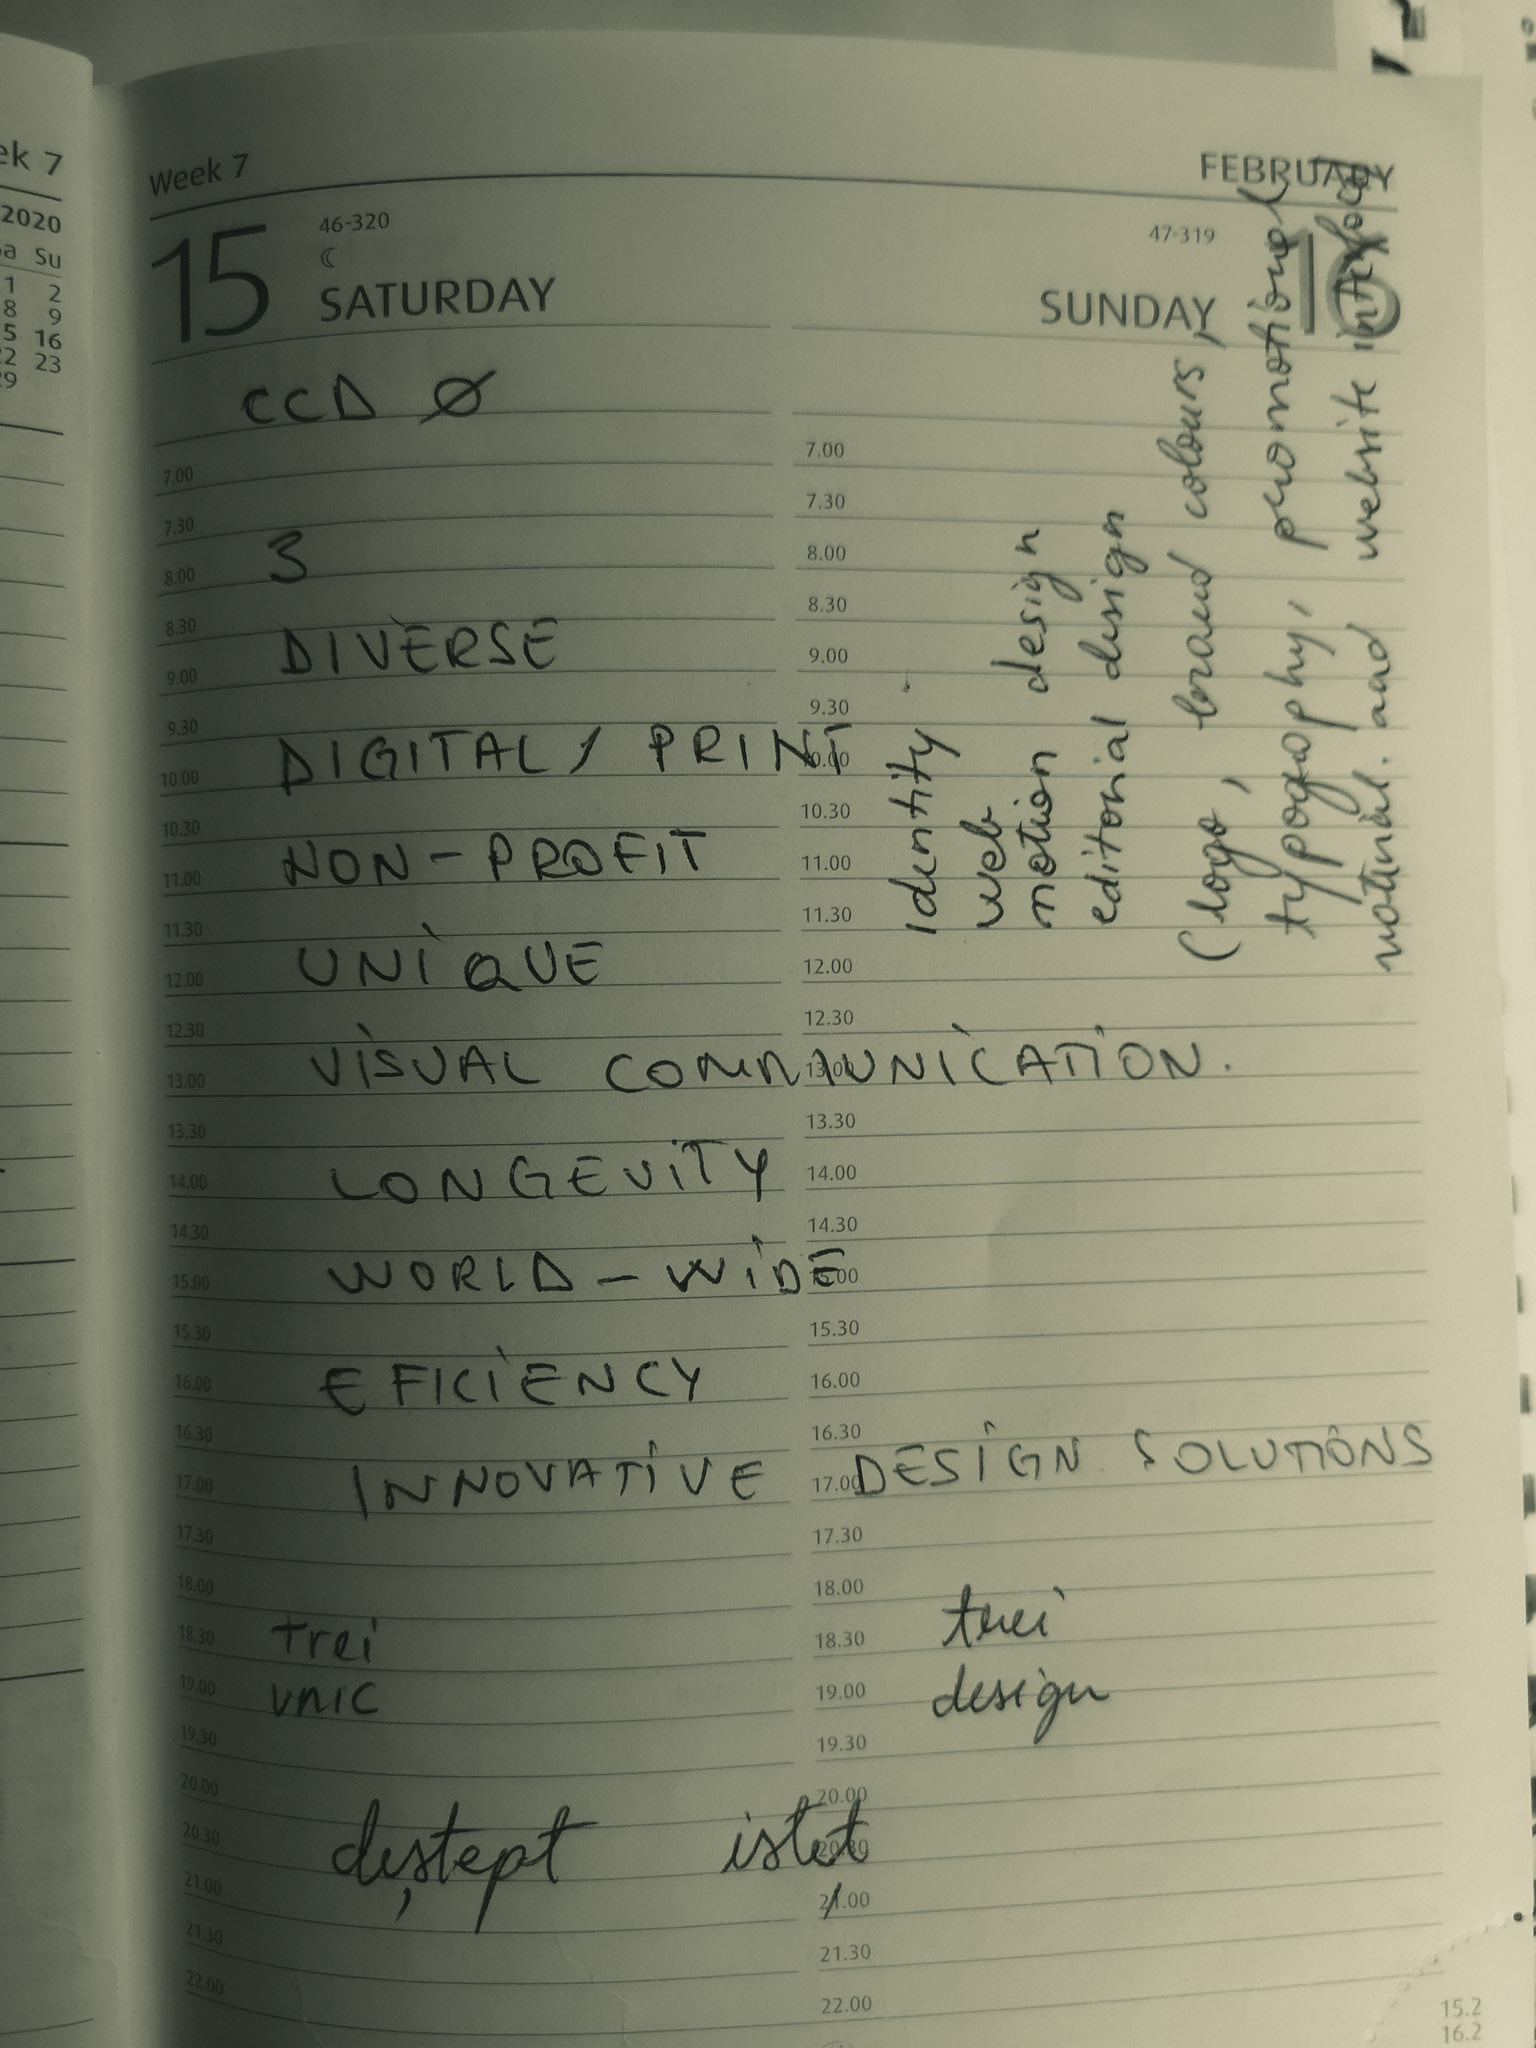 ek 7
2020
Sa Su
1 2
8 9
15 16
22 23
29
Week 7
FEBRUARY
15
46-320
SATURDAY
47-319
SUNDAY
16
CCD Ø
7.00
7.30
3
8.00
8.30
DIVERSE
9.00
9.30
DIGITAL / PRINT
10.00
10.30
NON-PROFIT
11.00
11.30
UNIQUE
12.00
12.30
VISUAL COMMUNICATION.
13.00
13.30
LONGEVITY
14.00
14.30
WORLD-WIDE
15.00
15.30
EFICIENCY
16.00
16.30
INNOVATIVE DESIGN SOLUTIONS
17.00
17.30
18.00
trei
18.30
unic
19.00
19.30
20.00
20.30
deștept isteț
21.00
21.30
22.00
7.00
7.30
8.00
8.30
9.00
9.30
10.00
10.30
11.00
11.30
12.00
12.30
13.00
13.30
14.00
14.30
15.00
15.30
16.00
16.30
17.00
17.30
18.00
trei
18.30
design
19.00
19.30
20.00
20.30
21.00
21.30
22.00
identity
web design
motion
editorial design
(logo, brand colours,
typography, promotional
and website
15.2
16.2